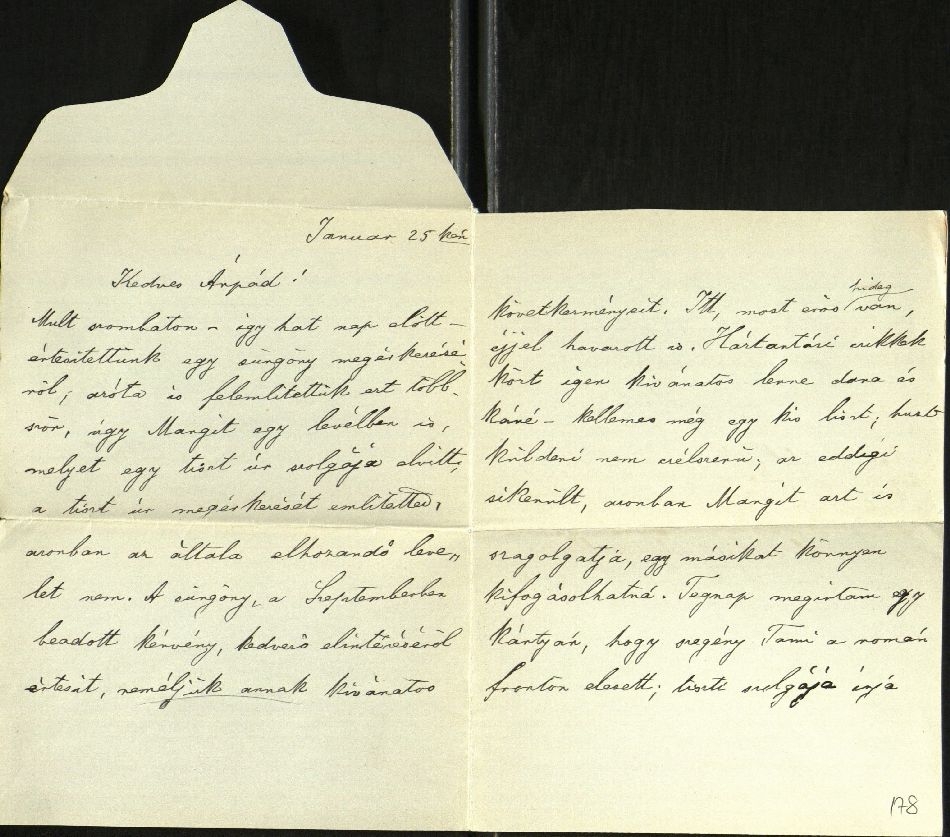 Januar 25 kén
Kedves Árpád!
Mult szombaton – igy hat nap előtt –
értesitettünk egy sürgöny megérkezésé
ről; azóta is felemlitettük ezt több-
ször, úgy Mangit egy levélben is,
melyet egy tiszt úr szolgája elvitt;
a tiszt úr megérkezését emlitetted,
azonban az általa elhozandó leve„
let nem. A sürgöny, a Szeptemberben
beadott kérvény, kedvező elintézéséről
értesit, reméljük annak kivánatos
következményeit. Itt, most erős hideg van,
éjjel havazott is. Háztartási czikkek
közt igen kivánatos lenne dara és
kávé – kellemes még egy kis liszt; hust
küldeni nem czélszerü; az eddigi
sikerült, azonban Mangit azt is
szagolgatja, egy másikat könnyen
kifogásolhatná. Tegnap megirtam egy
kártyán, hogy szegény Tami a román
fronton elesett; tiszti szolgája irja
178